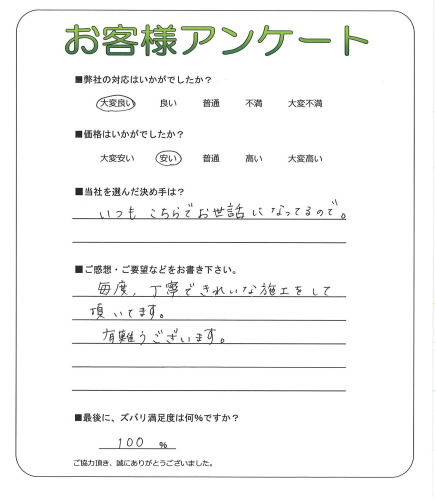 お客様アンケート
■弊社の対応はいかがでしたか？
大変良い 良い 普通 不満 大変不満
■価格はいかがでしたか？
大変安い 安い 普通 高い 大変高い
■当社を選んだ決め手は？
いつも こちらでお世話になってるので。
■ご感想・ご要望などをお書き下さい。
毎度、丁寧できれいな施工をして
頂いてます。
有難うございます。
■最後に、ズバリ満足度は何％ですか？
100 ％
ご協力頂き、誠にありがとうございました。